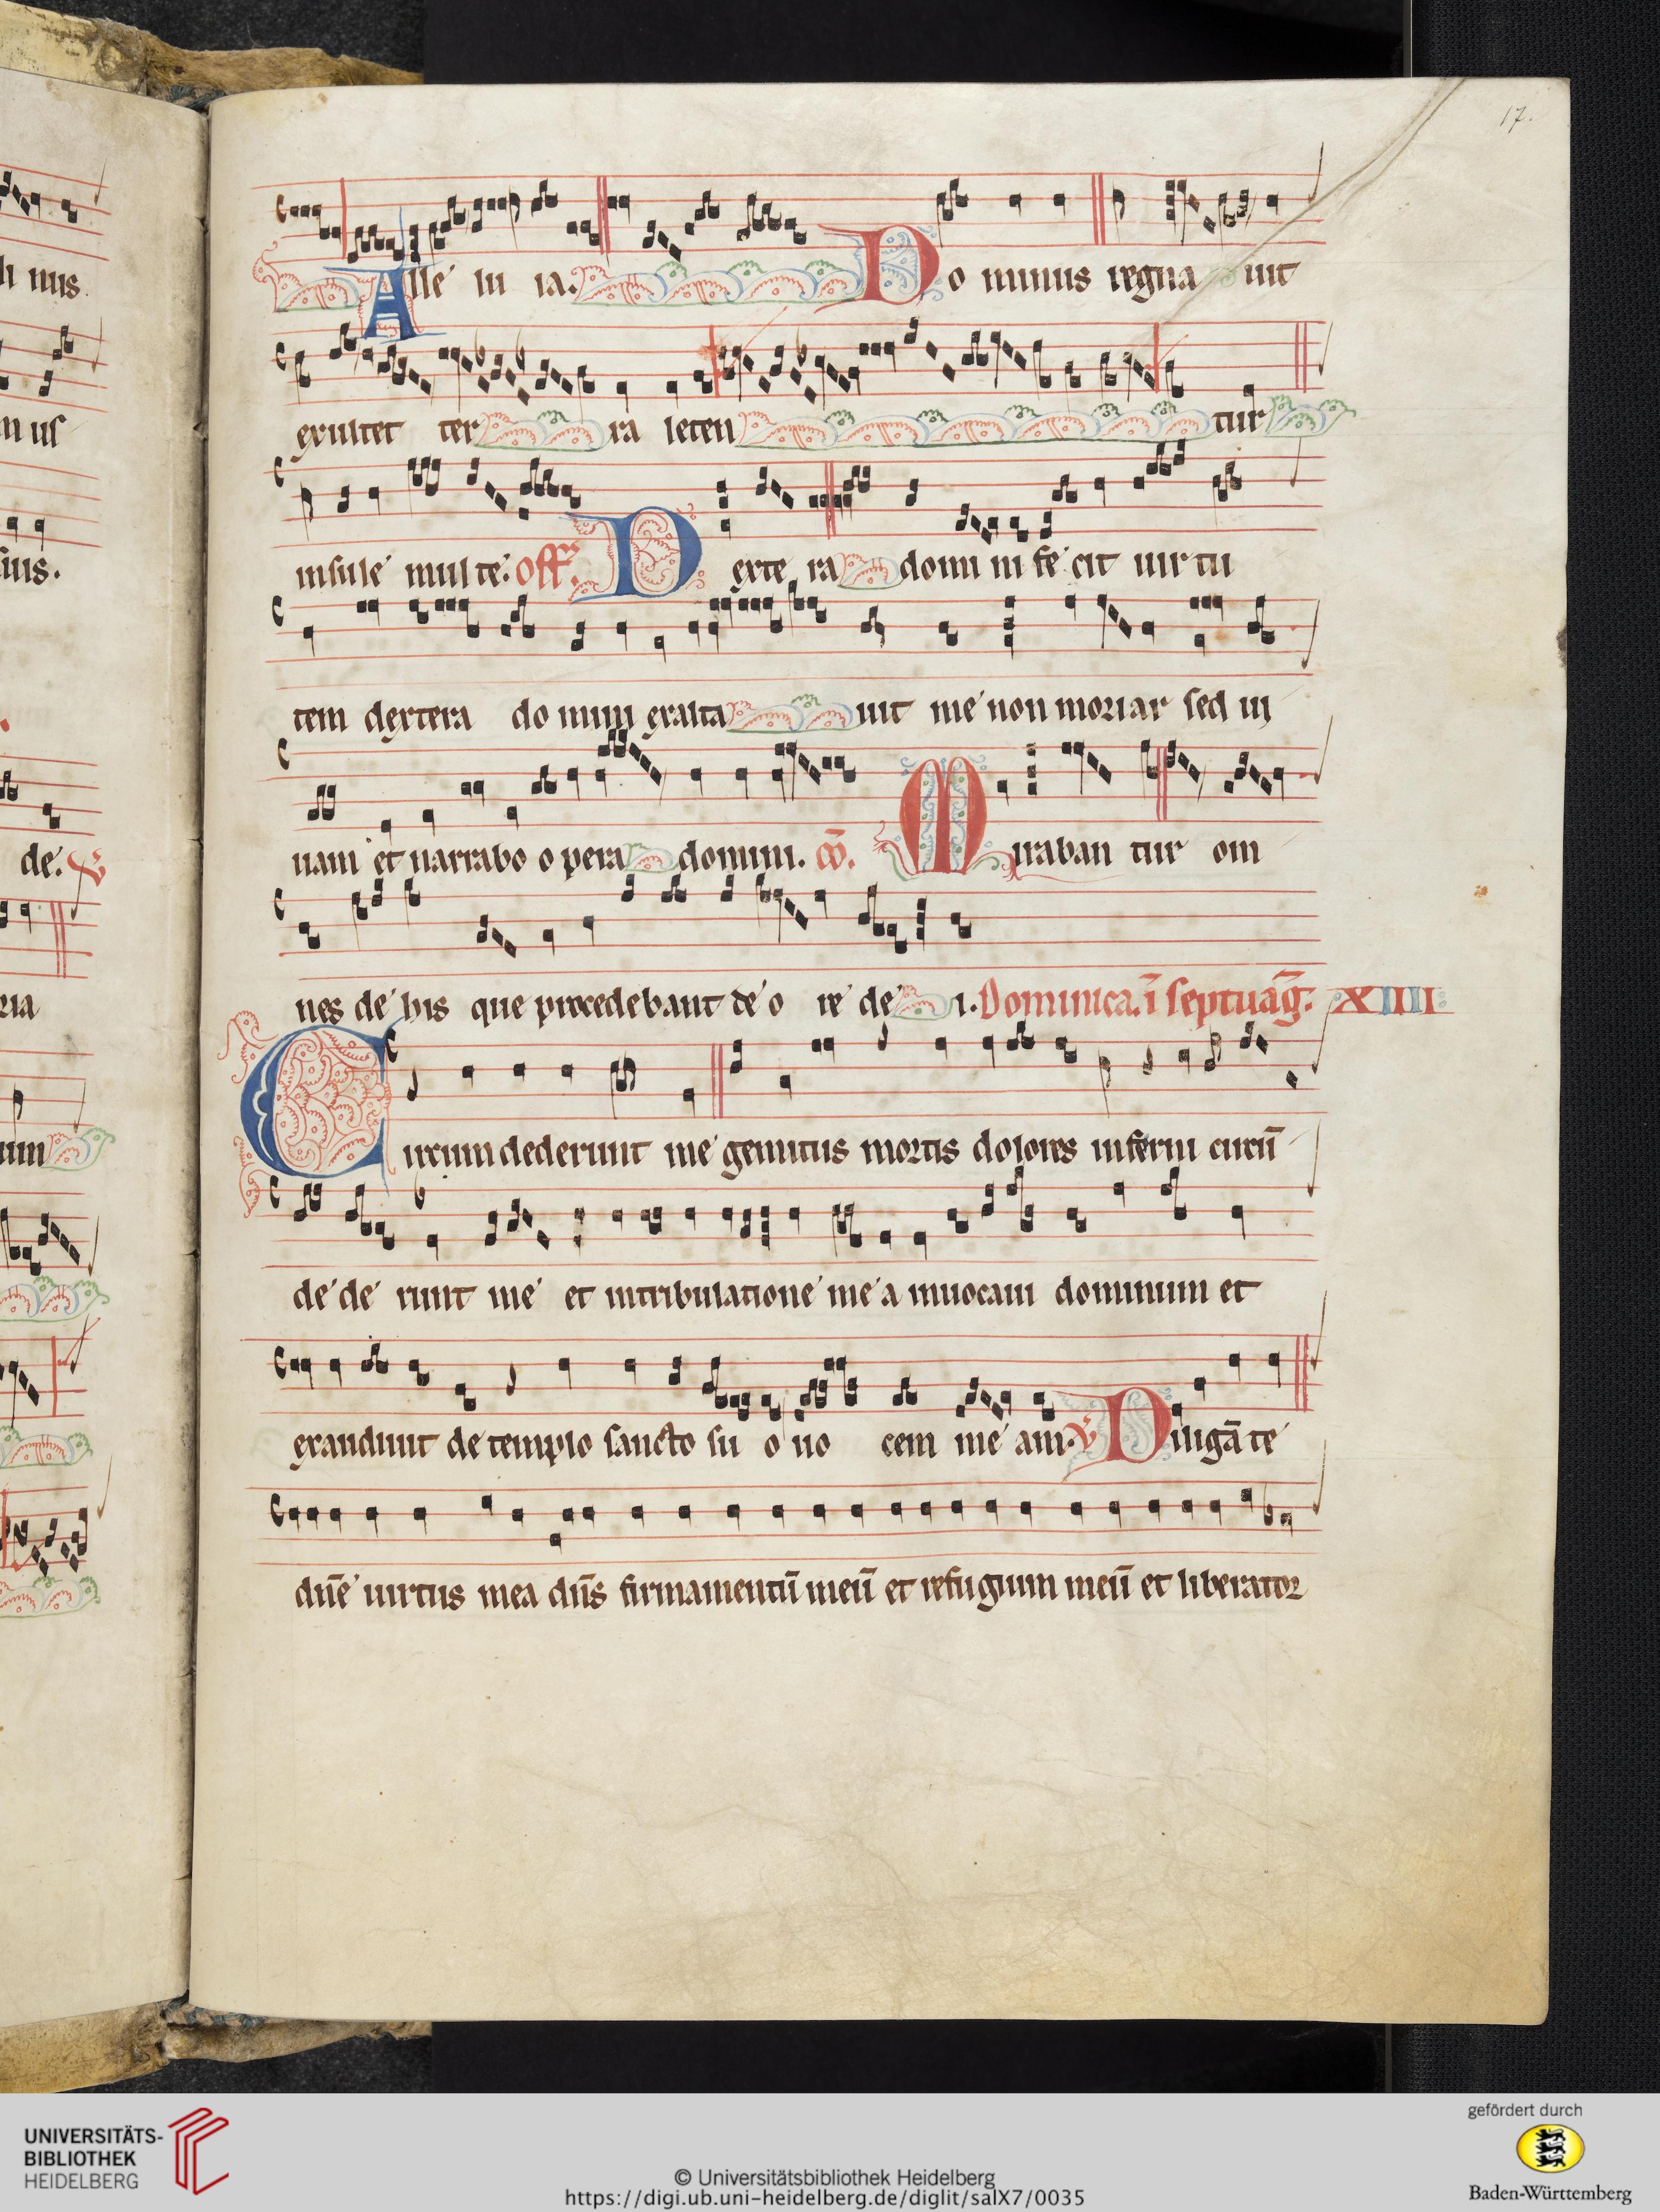 17.
li nus
Alle lu ia. Do minus regna uit
mus
exultet ter ra leten tur
sius.
insule multe. off. Dexte ra domi ni fe cit uir tu
tem dextera do mini exalta uit me non moriar sed ui
de. V
uam et narrabo opera domini. co. Miraban tur om
ria
nes de his que procedebant de o re de i. Dominica. i septuag. XIIII
Circum dederunt me gemitus mortis dolores inferni circu
de de runt me et in tribulatione me a inuocaui dominum et
exaudiuit de templo sancto su o uo cem me am. V Diligā te
dñe uirtus mea dñs firmamentū meū et refugium meū et liberator
UNIVERSITÄTS-
BIBLIOTHEK
HEIDELBERG
© Universitätsbibliothek Heidelberg
https://digi.ub.uni-heidelberg.de/diglit/salX7/0035
gefördert durch
Baden-Württemberg